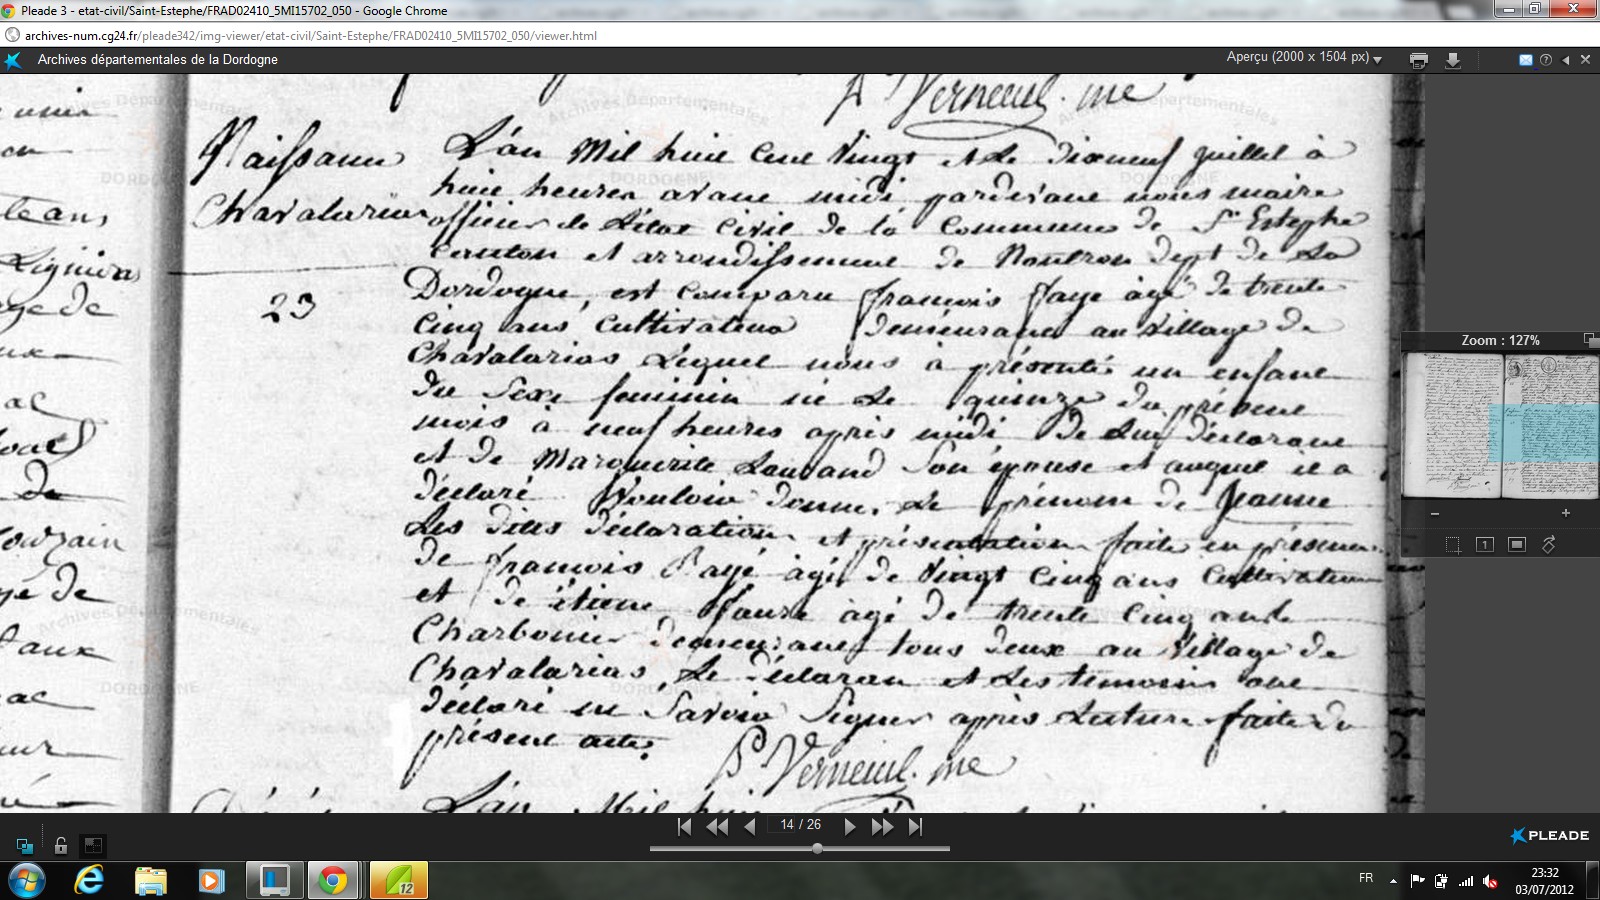 Pleade 3 - etat-civil/Saint-Estephe/FRAD02410_5MI15702_050 - Google Chrome
archives-num.cg24.fr/pleade342/img-viewer/etat-civil/Saint-Estephe/FRAD02410_5MI15702_050/viewer.html
Archives départementales de la Dordogne
Aperçu (2000 x 1504 px)
Verneuil. me
Naissance
Chavalarias
23
L'an Mil huit Cent Vingt et Le Dixneuf juillet à
huit heures avant midi pardevant nous maire
officier de L'état Civil de la Commune de St Estephe
Canton et arrondissement de Nontron dept de La
Dordogne, est Comparu francois faye âgé de trente
Cinq ans Cultivateur demeurant au Village de
Chavalarias Lequel nous à présenté un enfant
du Sexe feminin né Le quinze du présent
mois à neuf heures après midi De Lui déclarant
et de Marguerite Son épouse et auquel il a
déclaré Vouloir donner Le prénom de Jeanne
Les dites déclaration et présentation faite en présence
de francois âgé de Vingt Cinq ans Cultivateur
et de étiene faure âgé de trente Cinq ans
Charbonier demeurant tous deux au Village de
Chavalarias, Le déclarant et Les temoins ont
déclaré ne Savoir Signer après Lecture faite du
présent acte.
P. Verneuil. me
L'an Mil huit
Zoom : 127%
14 / 26
PLEADE
FR
23:32
03/07/2012